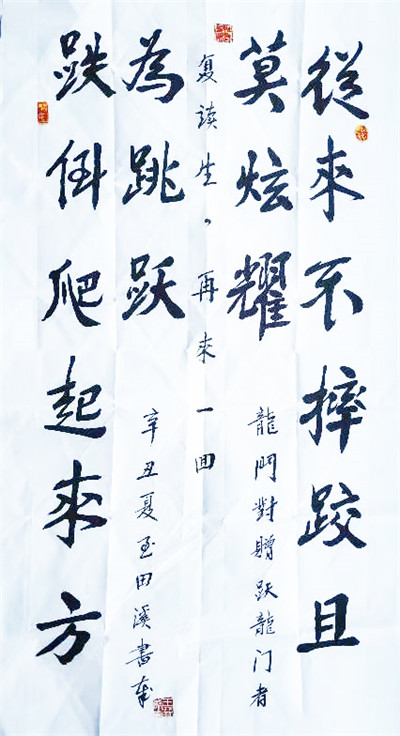 從來不摔跤且
莫炫耀
龍門對贈跃龍门者
复读生,再來一回
跌倒爬起來方
為跳跃
辛丑夏至田溪書